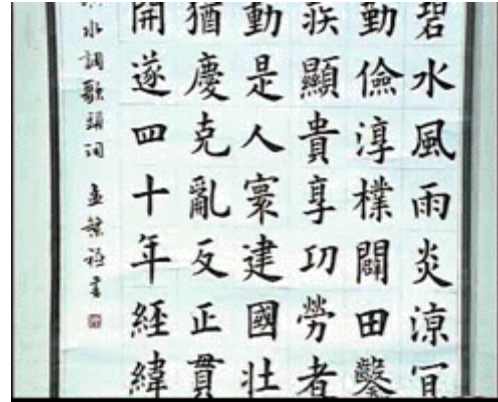 碧水風雨炎涼
勤儉淳樸闢田鑿
顯貴享功勞者
動是人寰建國壯
猶慶克亂反正貫
開遂四十年經緯
水調歌頭詞 孟繁禧書